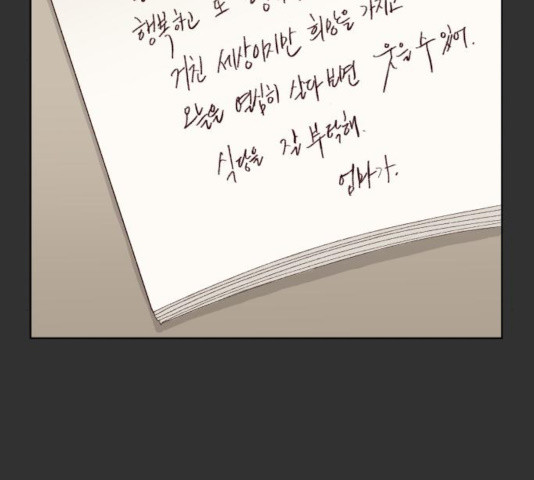 행복하고 또
거친 세상이지만 희망을 가지고
오늘을 열심히 살다 보면 웃을 수 있어.
식당을 잘 부탁해.
엄마가.